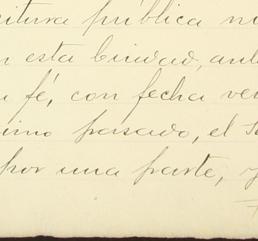 critura pública nú
n esta Ciudad, ante
a fé, con fecha vei
imo pasado, el Se
por una parte, y